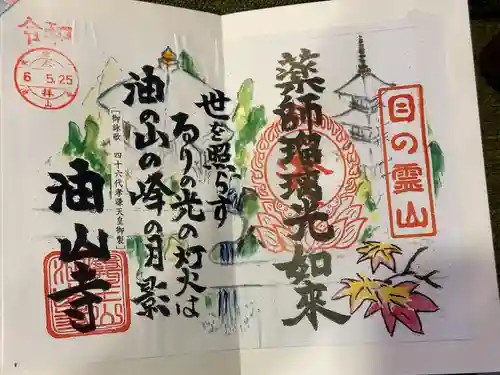 目の霊山
薬師瑠璃光如来
世を照らす
るりの光の灯火は
油の山の峰の月影
「御詠歌　四十六代孝謙天皇御製」
油山寺
令和
6.5.25
拝山